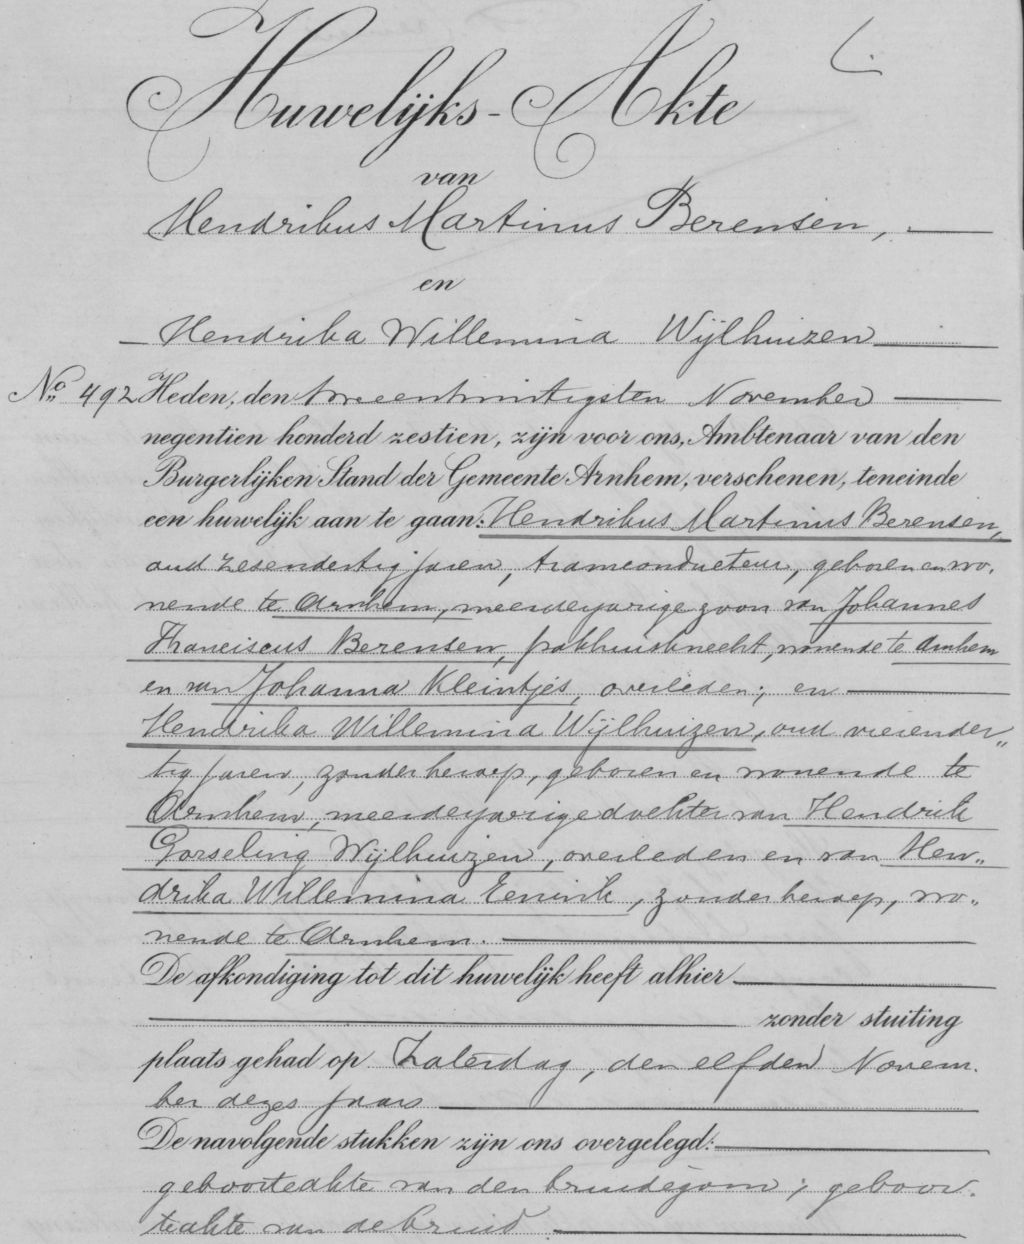 Huwelijks-Akte
van
Hendrikus Martinus Berensen,
en
Hendrika Willemina Wijlhuizen
No. 492 Heden, den tweeentwintigsten November
negentien honderd zestien, zijn voor ons, Ambtenaar van den
Burgerlijken Stand der Gemeente Arnhem, verschenen, teneinde
een huwelijk aan te gaan: Hendrikus Martinus Berensen,
oud zesendertig jaren, tramconducteur, geboren en wo„
nende te Arnhem, meerderjarige zoon van Johannes
Franciscus Berensen, pakhuisknecht, wonende te Arnhem
en van Johanna Kleintjes, overleden; en
Hendrika Willemina Wijlhuizen, oud vierender„
tig jaren, zonder beroep, geboren en wonende te
Arnhem, meerderjarige dochter van Hendrik
Gorseling Wijlhuizen, overleden en van Hen„
drika Willemina Eenink, zonder beroep, wo„
nende te Arnhem.
De afkondiging tot dit huwelijk heeft alhier
zonder stuiting
plaats gehad op Zaterdag, den elfden Novem„
ber dezes jaars
De navolgende stukken zijn ons overgelegd:
geboorteakte van den bruidegom; geboor„
teakte van de bruid.